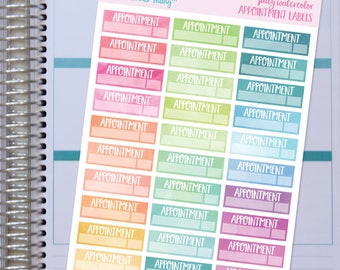 juicy watercolor
APPOINTMENT LABELS
APPOINTMENT APPOINTMENT APPOINTMENT
APPOINTMENT APPOINTMENT APPOINTMENT
APPOINTMENT APPOINTMENT APPOINTMENT
APPOINTMENT APPOINTMENT APPOINTMENT
APPOINTMENT APPOINTMENT APPOINTMENT
APPOINTMENT APPOINTMENT APPOINTMENT
APPOINTMENT APPOINTMENT APPOINTMENT
APPOINTMENT APPOINTMENT APPOINTMENT
APPOINTMENT APPOINTMENT APPOINTMENT
APPOINTMENT APPOINTMENT APPOINTMENT